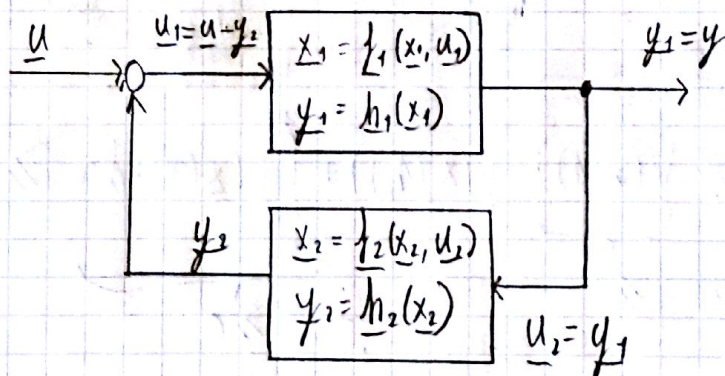 u
u₁=u-y₂
x₁ = f₁(x₁, u₁)
y₁ = h₁(x₁)
y₁=y
y₂
x₂ = f₂(x₂, u₂)
y₂ = h₂(x₂)
u₂ = y₁